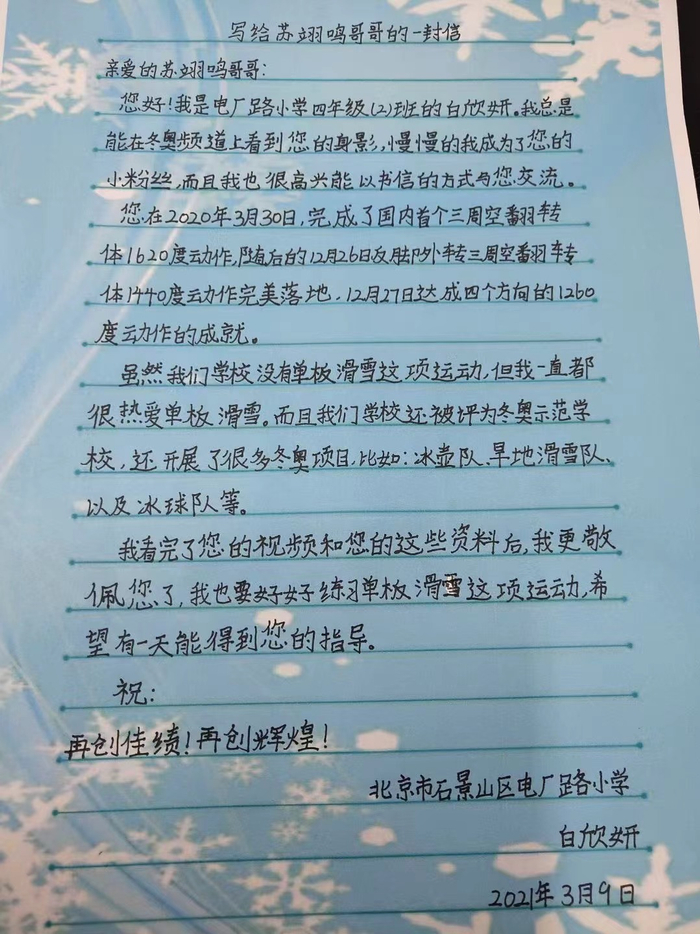 写给苏翊鸣哥哥的一封信
亲爱的苏翊鸣哥哥：
您好！我是电厂路小学四年级(2)班的白欣妍。我总是
能在冬奥频道上看到您的身影，慢慢的我成为了您的
小粉丝，而且我也很高兴能以书信的方式与您交流。
您在2020年3月30日，完成了国内首个三周空翻转
体1620度动作，随后的12月26日反脚外转三周空翻转
体1440度动作完美落地，12月27日达成四个方向的1260
度动作的成就。
虽然我们学校没有单板滑雪这项运动，但我一直都
很热爱单板滑雪。而且我们学校还被评为冬奥示范学
校，还开展了很多冬奥项目，比如：冰壶队、旱地滑雪队、
以及冰球队等。
我看完了您的视频和您的这些资料后，我更敬
佩您了，我也要好好练习单板滑雪这项运动，希
望有一天能得到您的指导。
祝：
再创佳绩！再创辉煌！
北京市石景山区电厂路小学
白欣妍
2021年3月9日